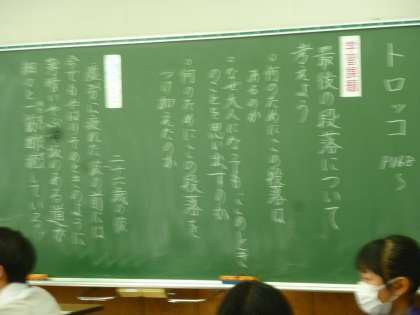 トロッコ
P168〜
学習課題
最後の段落について
考えよう
○何のためにこの段落は
あるのか
○なぜ大人になっても、このときの
ことを思い出すのか
○何のためにこの段落を
つけ加えたのか
二十六歳の
塵労に疲れた彼の前には
今でもやはりそのときのように、
薄暗いやぶや坂のある道が
細々と一筋断続している。